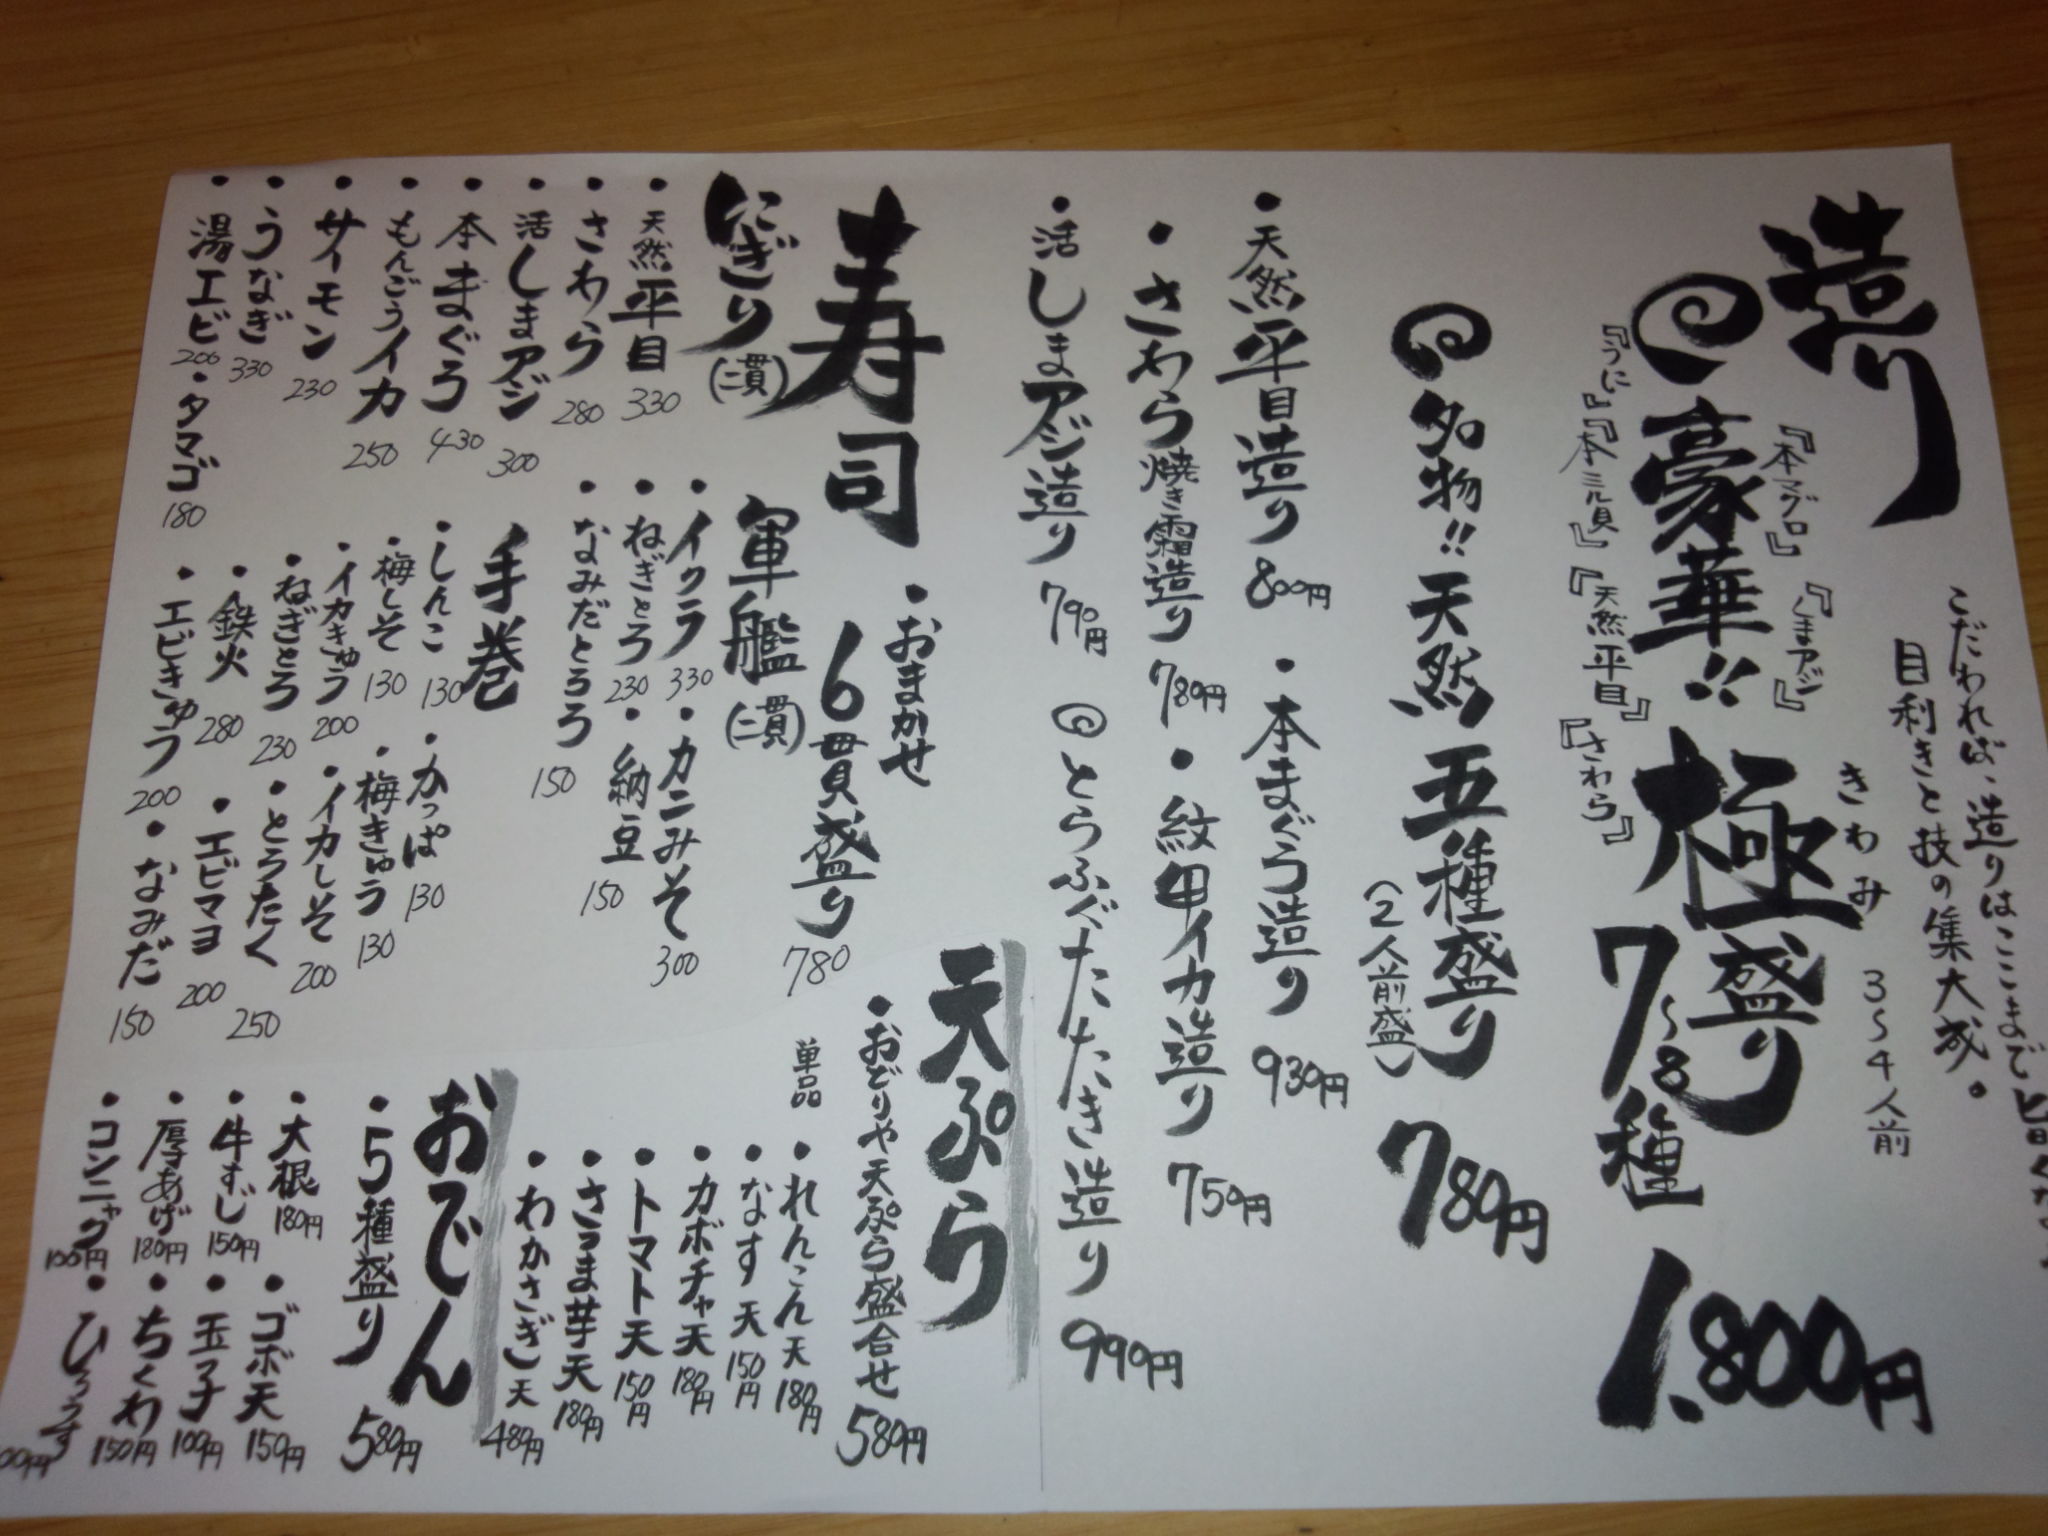 造り
こだわれば、造りはここまで
目利きと技の集大成。
豪華!! 極盛り 7~8種 1,800円
きわみ
3~4人前
『本マグロ』『しまアジ』
『うに』『本ミル貝』『天然平目』『さわら』
名物!! 天然五種盛り 780円
(2人前盛)
・天然平目造り 800円
・本まぐろ造り 930円
・さわら焼き霜造り 780円
・紋甲イカ造り 750円
・活しまアジ造り 790円
とらふぐたたき造り 999円
寿司
・おまかせ
6貫盛り 780
にぎり(二貫)
・天然平目 330
・さわら 280
・活しまアジ 300
・本まぐろ 430
・もんごうイカ 250
・サイモン 230
・うなぎ 330
・湯エビ 200
・タマゴ 180
軍艦(二貫)
・イクラ 330
・カニみそ 300
・ねぎとろ 230
・納豆 150
・なみだとろろ 150
手巻
・しんこ 130
・かっぱ 130
・梅しそ 130
・梅きゅう 130
・イカきゅう 200
・イカしそ 200
・ねぎとろ 230
・とろたく 250
・鉄火 280
・エビマヨ 200
・エビきゅう 200
・なみだ 150
天ぷら
・おどりや天ぷら盛合せ 580円
単品
・れんこん天 180円
・なす天 150円
・カボチャ天 180円
・トマト天 150円
・さつま芋天 180円
・わかさぎ天 480円
おでん
・5種盛り 580円
・大根 180円
・ゴボ天 150円
・牛すじ 150円
・玉子 100円
・厚あげ 180円
・ちくわ 150円
・コンニャク 100円
・ひろうす